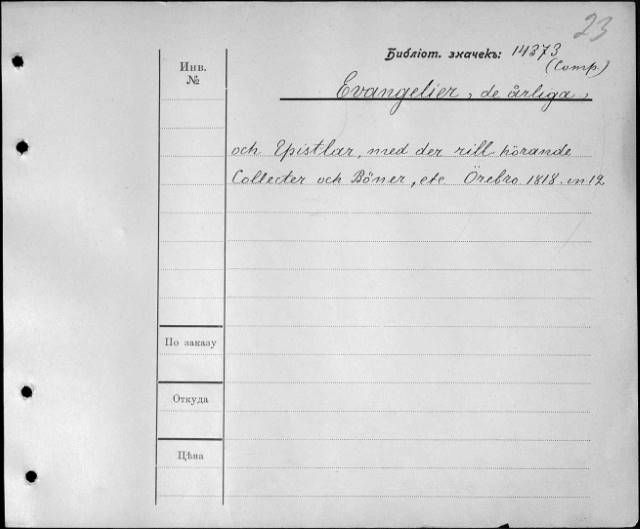 23
Библіот. значекъ: 14373
(Comp.)
Инв.
№
Evangelier, de årliga,
och Epistlar, med der till hörande
Collecter och Böner, etc Örebro 1818. in 12
По заказу
Откуда
Цѣна